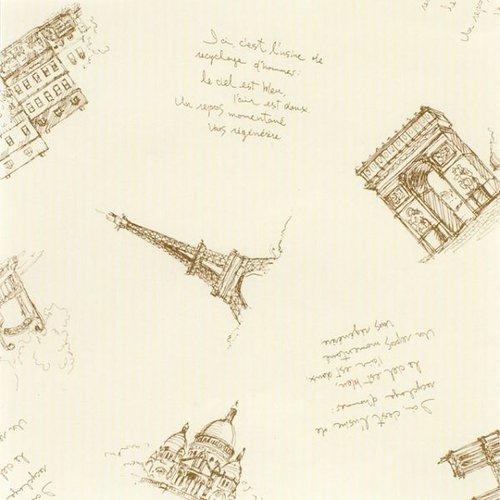 Ici, c'est l'usine de
recyclage d'hommes:
le ciel est bleu,
l'air est doux
Un repos momentané
vous régénère
Ici, c'est l'usine de
recyclage d'hommes:
le ciel est bleu,
l'air est doux
Un repos momentané
vous régénère
Un repos
le ciel
recyclage